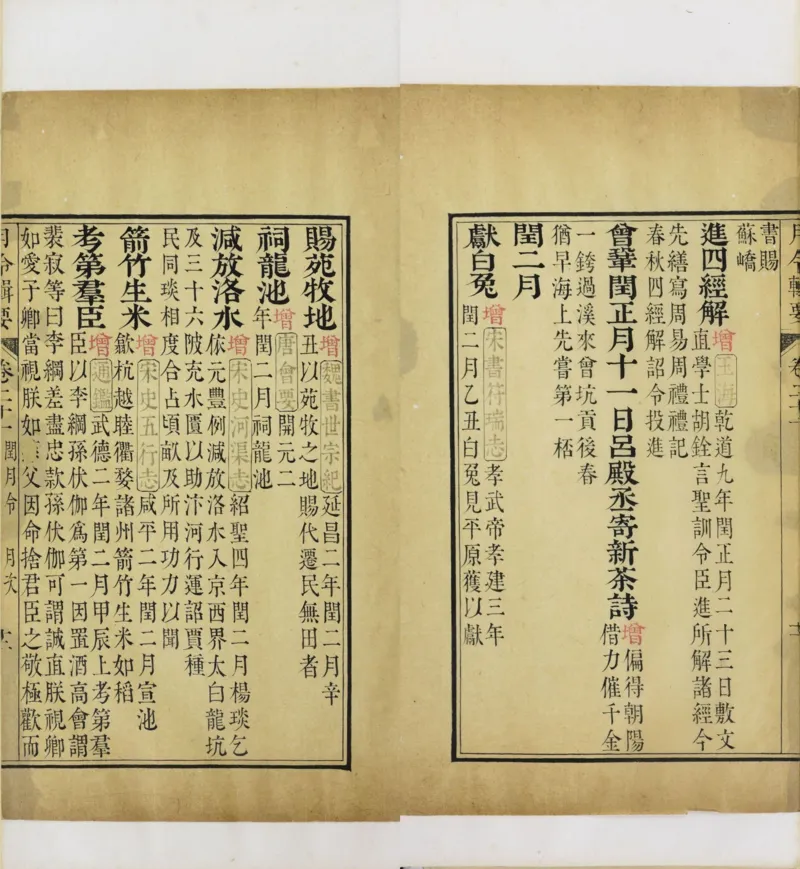 書賜
蘇嶠
進四經解增玉海乾道九年閏正月二十三日敷文
直學士胡銓言聖訓令臣進所解諸經今
先繕寫周易周禮禮記
春秋四經解詔令投進
曾鞏閏正月十一日呂殿丞寄新茶詩增偏得朝陽
借力催千金
一銙過溪來曾坑貢後春
猶早海上先嘗第一桮
閏二月
獻白兔增宋書符瑞志孝武帝孝建三年
閏二月乙丑白兔見平原獲以獻
賜苑牧地增魏書世宗紀延昌二年閏二月辛
丑以苑牧之地賜代遷民無田者
祠龍池增唐會要開元二
年閏二月祠龍池
減放洛水增宋史河渠志紹聖四年閏二月楊琰乞
依元豐例減放洛水入京西界太白龍坑
及三十六陂充水匱以助汴河行運詔賈種
民同琰相度合占頃畝及所用功力以聞
箭竹生米增宋史五行志咸平二年閏二月宣池
歙杭越睦衢婺諸州箭竹生米如稻
考第羣臣增通鑑武德二年閏二月甲辰上考第羣
臣以李綱孫伏伽爲第一因置酒高會謂
裴寂等曰李綱差盡忠款孫伏伽可謂誠直朕視卿
如愛子卿當視朕如父因命捨君臣之敬極歡而
月令輯要 卷二十一 閏月令 月次